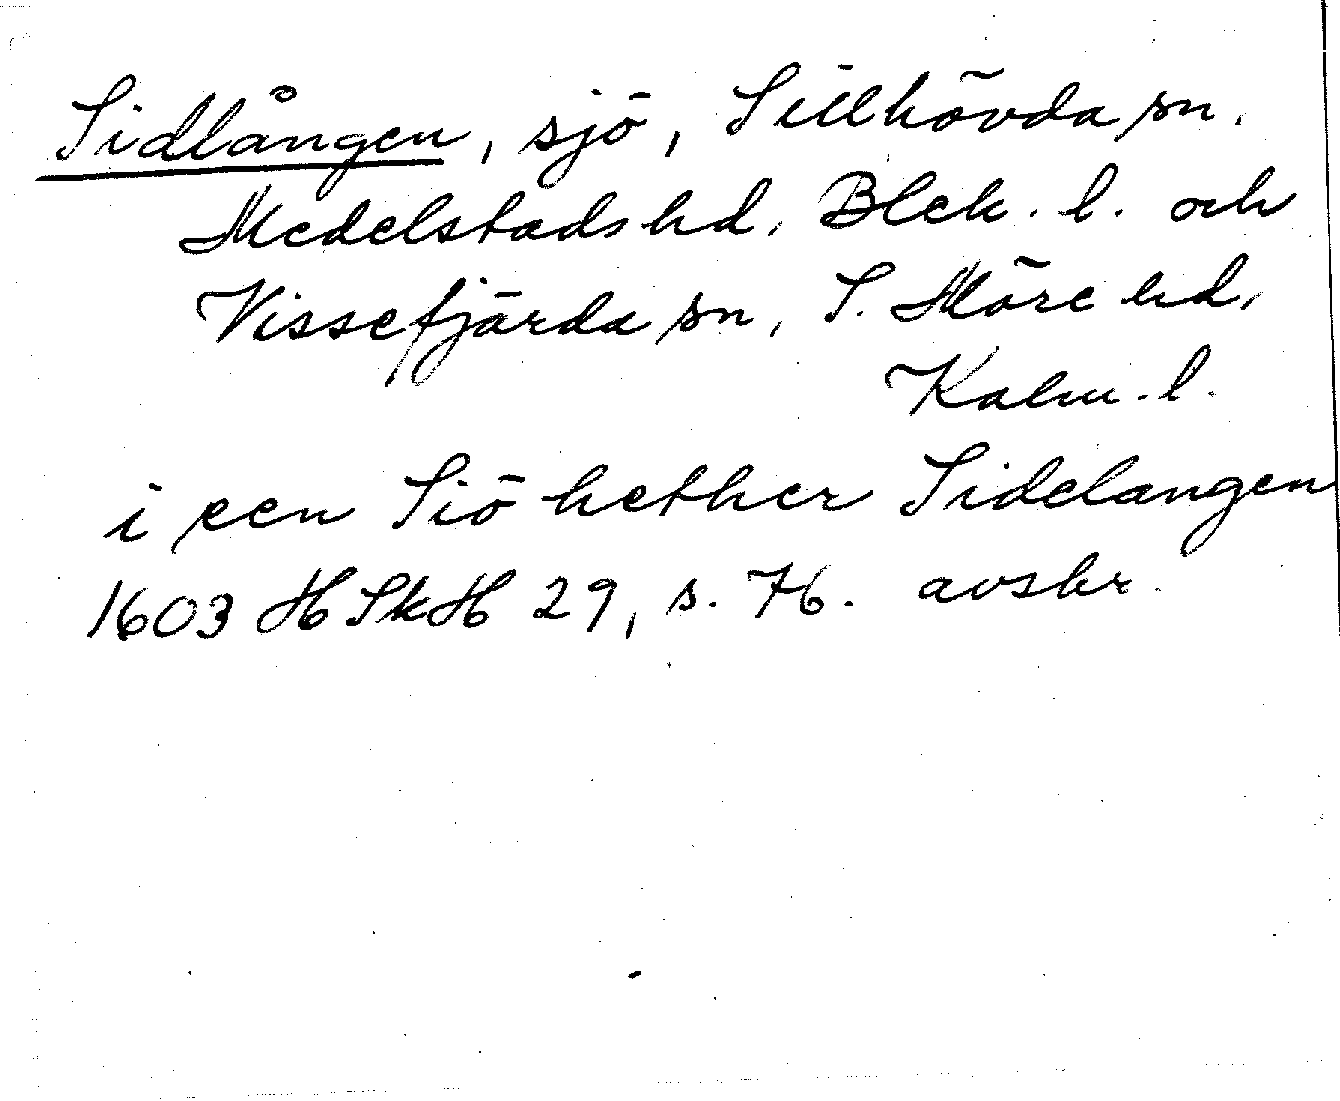 Sidlången, sjö, Sillhövda sn.
Medelstads hd, Blek. l. och
Vissefjärda sn, S. Möre hd,
Kalm. l.
i een Siö hether Sidelangen
1603 HSkH 29, s. 76. avskr.